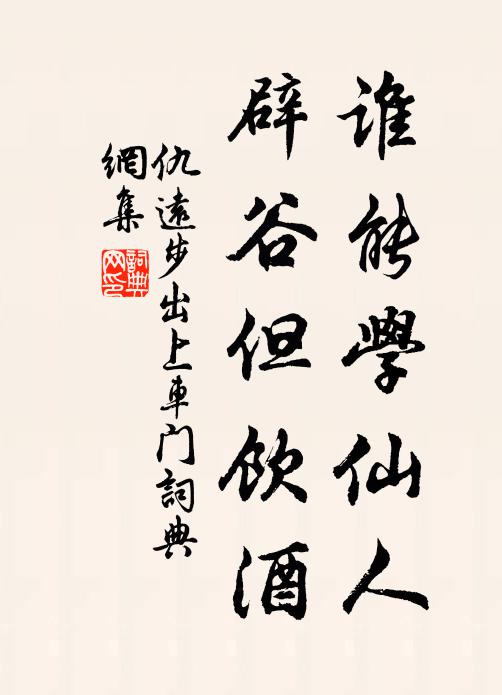 谁能學仙人
辟谷但饮酒
仇遠步出上車门詞典
網集
詞典
网印